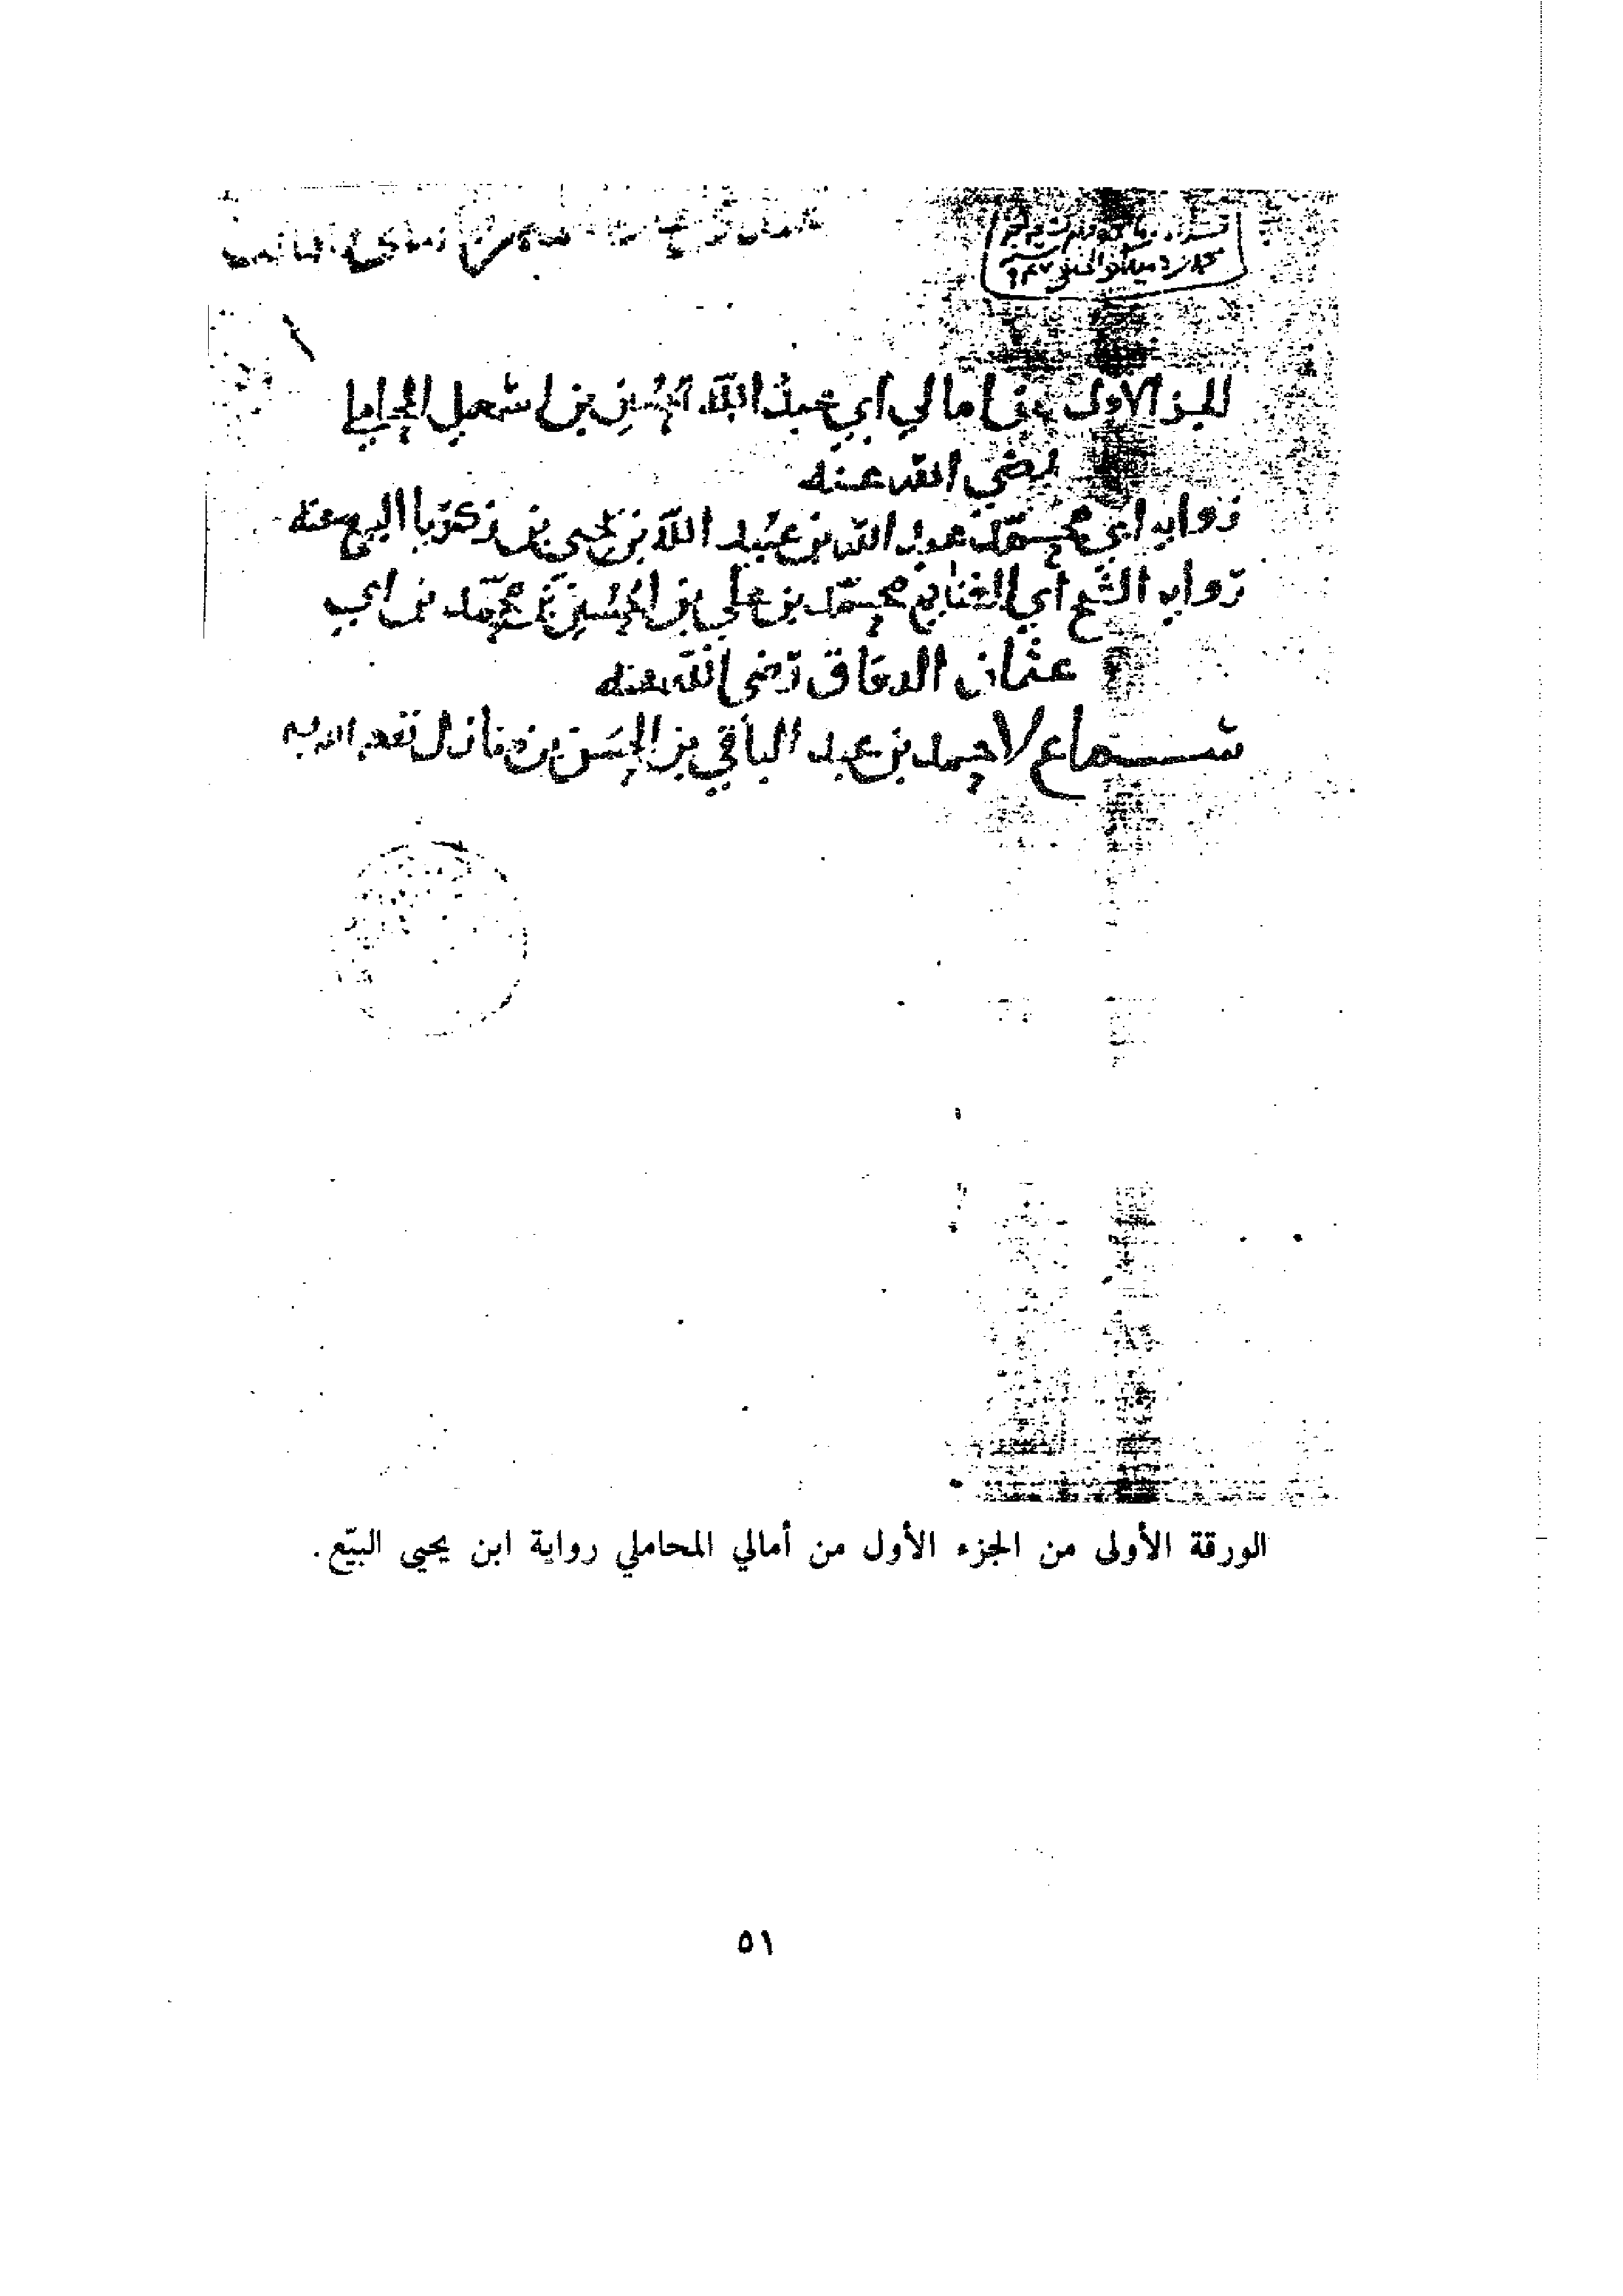 الجزء الاول من امالي ابي عبد الله الحسين بن اسمعيل المحاملي
رضي الله عنه
رواية ابي محمد عبد الله بن عبيد الله بن يحيى بن زكريا البيع عنه
رواية الشيخ أبي الغنايم محمد بن علي بن الحسين بن محمد بن ابي
عثمان الدقاق رضي الله عنه
سماع لاحمد بن عبد الباقي بن الحسن بن منازل نفعه الله به
الورقة الأولى من الجزء الأول من أمالي المحاملي رواية ابن يحيى البيّع.
٥١